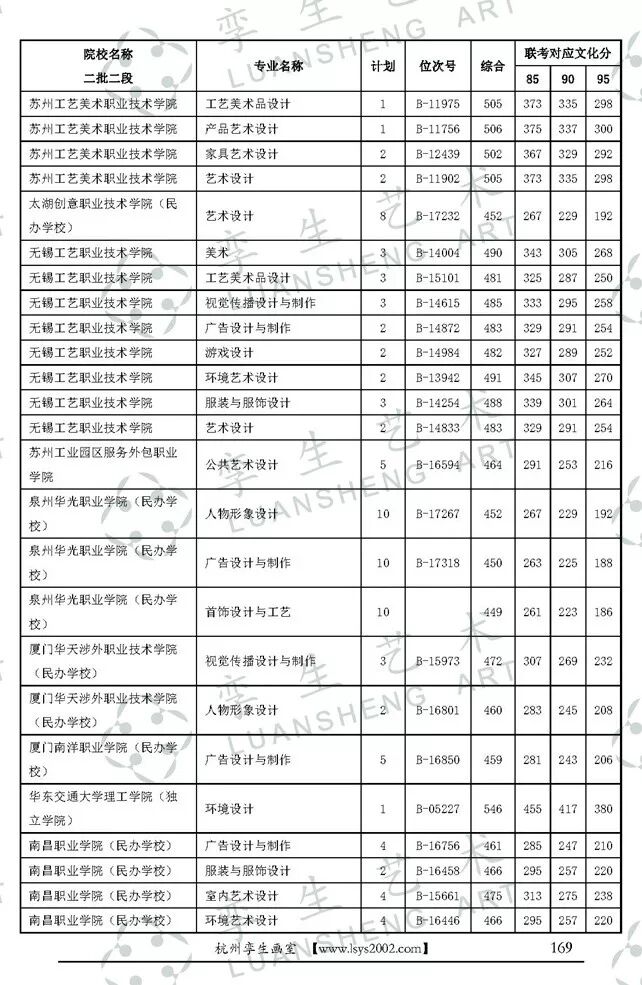 院校名称 二批二段 专业名称 计划 位次号 综合 联考对应文化分
85 90 95
苏州工艺美术职业技术学院 工艺美术品设计 1 B-11975 505 373 335 298
苏州工艺美术职业技术学院 产品艺术设计 1 B-11756 506 375 337 300
苏州工艺美术职业技术学院 家具艺术设计 2 B-12439 502 367 329 292
苏州工艺美术职业技术学院 艺术设计 2 B-11902 505 373 335 298
太湖创意职业技术学院（民办学校） 艺术设计 8 B-17232 452 267 229 192
无锡工艺职业技术学院 美术 3 B-14004 490 343 305 268
无锡工艺职业技术学院 工艺美术品设计 3 B-15101 481 325 287 250
无锡工艺职业技术学院 视觉传播设计与制作 3 B-14615 485 333 295 258
无锡工艺职业技术学院 广告设计与制作 2 B-14872 483 329 291 254
无锡工艺职业技术学院 游戏设计 2 B-14984 482 327 289 252
无锡工艺职业技术学院 环境艺术设计 2 B-13942 491 345 307 270
无锡工艺职业技术学院 服装与服饰设计 3 B-14254 488 339 301 264
无锡工艺职业技术学院 艺术设计 2 B-14833 483 329 291 254
苏州工业园区服务外包职业学院 公共艺术设计 5 B-16594 464 291 253 216
泉州华光职业学院（民办学校） 人物形象设计 10 B-17267 452 267 229 192
泉州华光职业学院（民办学校） 广告设计与制作 10 B-17318 450 263 225 188
泉州华光职业学院（民办学校） 首饰设计与工艺 10 449 261 223 186
厦门华天涉外职业技术学院（民办学校） 视觉传播设计与制作 3 B-15973 472 307 269 232
厦门华天涉外职业技术学院（民办学校） 人物形象设计 2 B-16801 460 283 245 208
厦门南洋职业学院（民办学校） 广告设计与制作 5 B-16850 459 281 243 206
华东交通大学理工学院（独立学院） 环境设计 1 B-05227 546 455 417 380
南昌职业学院（民办学校） 广告设计与制作 4 B-16756 461 285 247 210
南昌职业学院（民办学校） 服装与服饰设计 2 B-16458 466 295 257 220
南昌职业学院（民办学校） 室内艺术设计 4 B-15661 475 313 275 238
南昌职业学院（民办学校） 环境艺术设计 4 B-16446 466 295 257 220
杭州孪生画室 【www.lsys2002.com】 169
孪生艺术
LUANSHENG ART